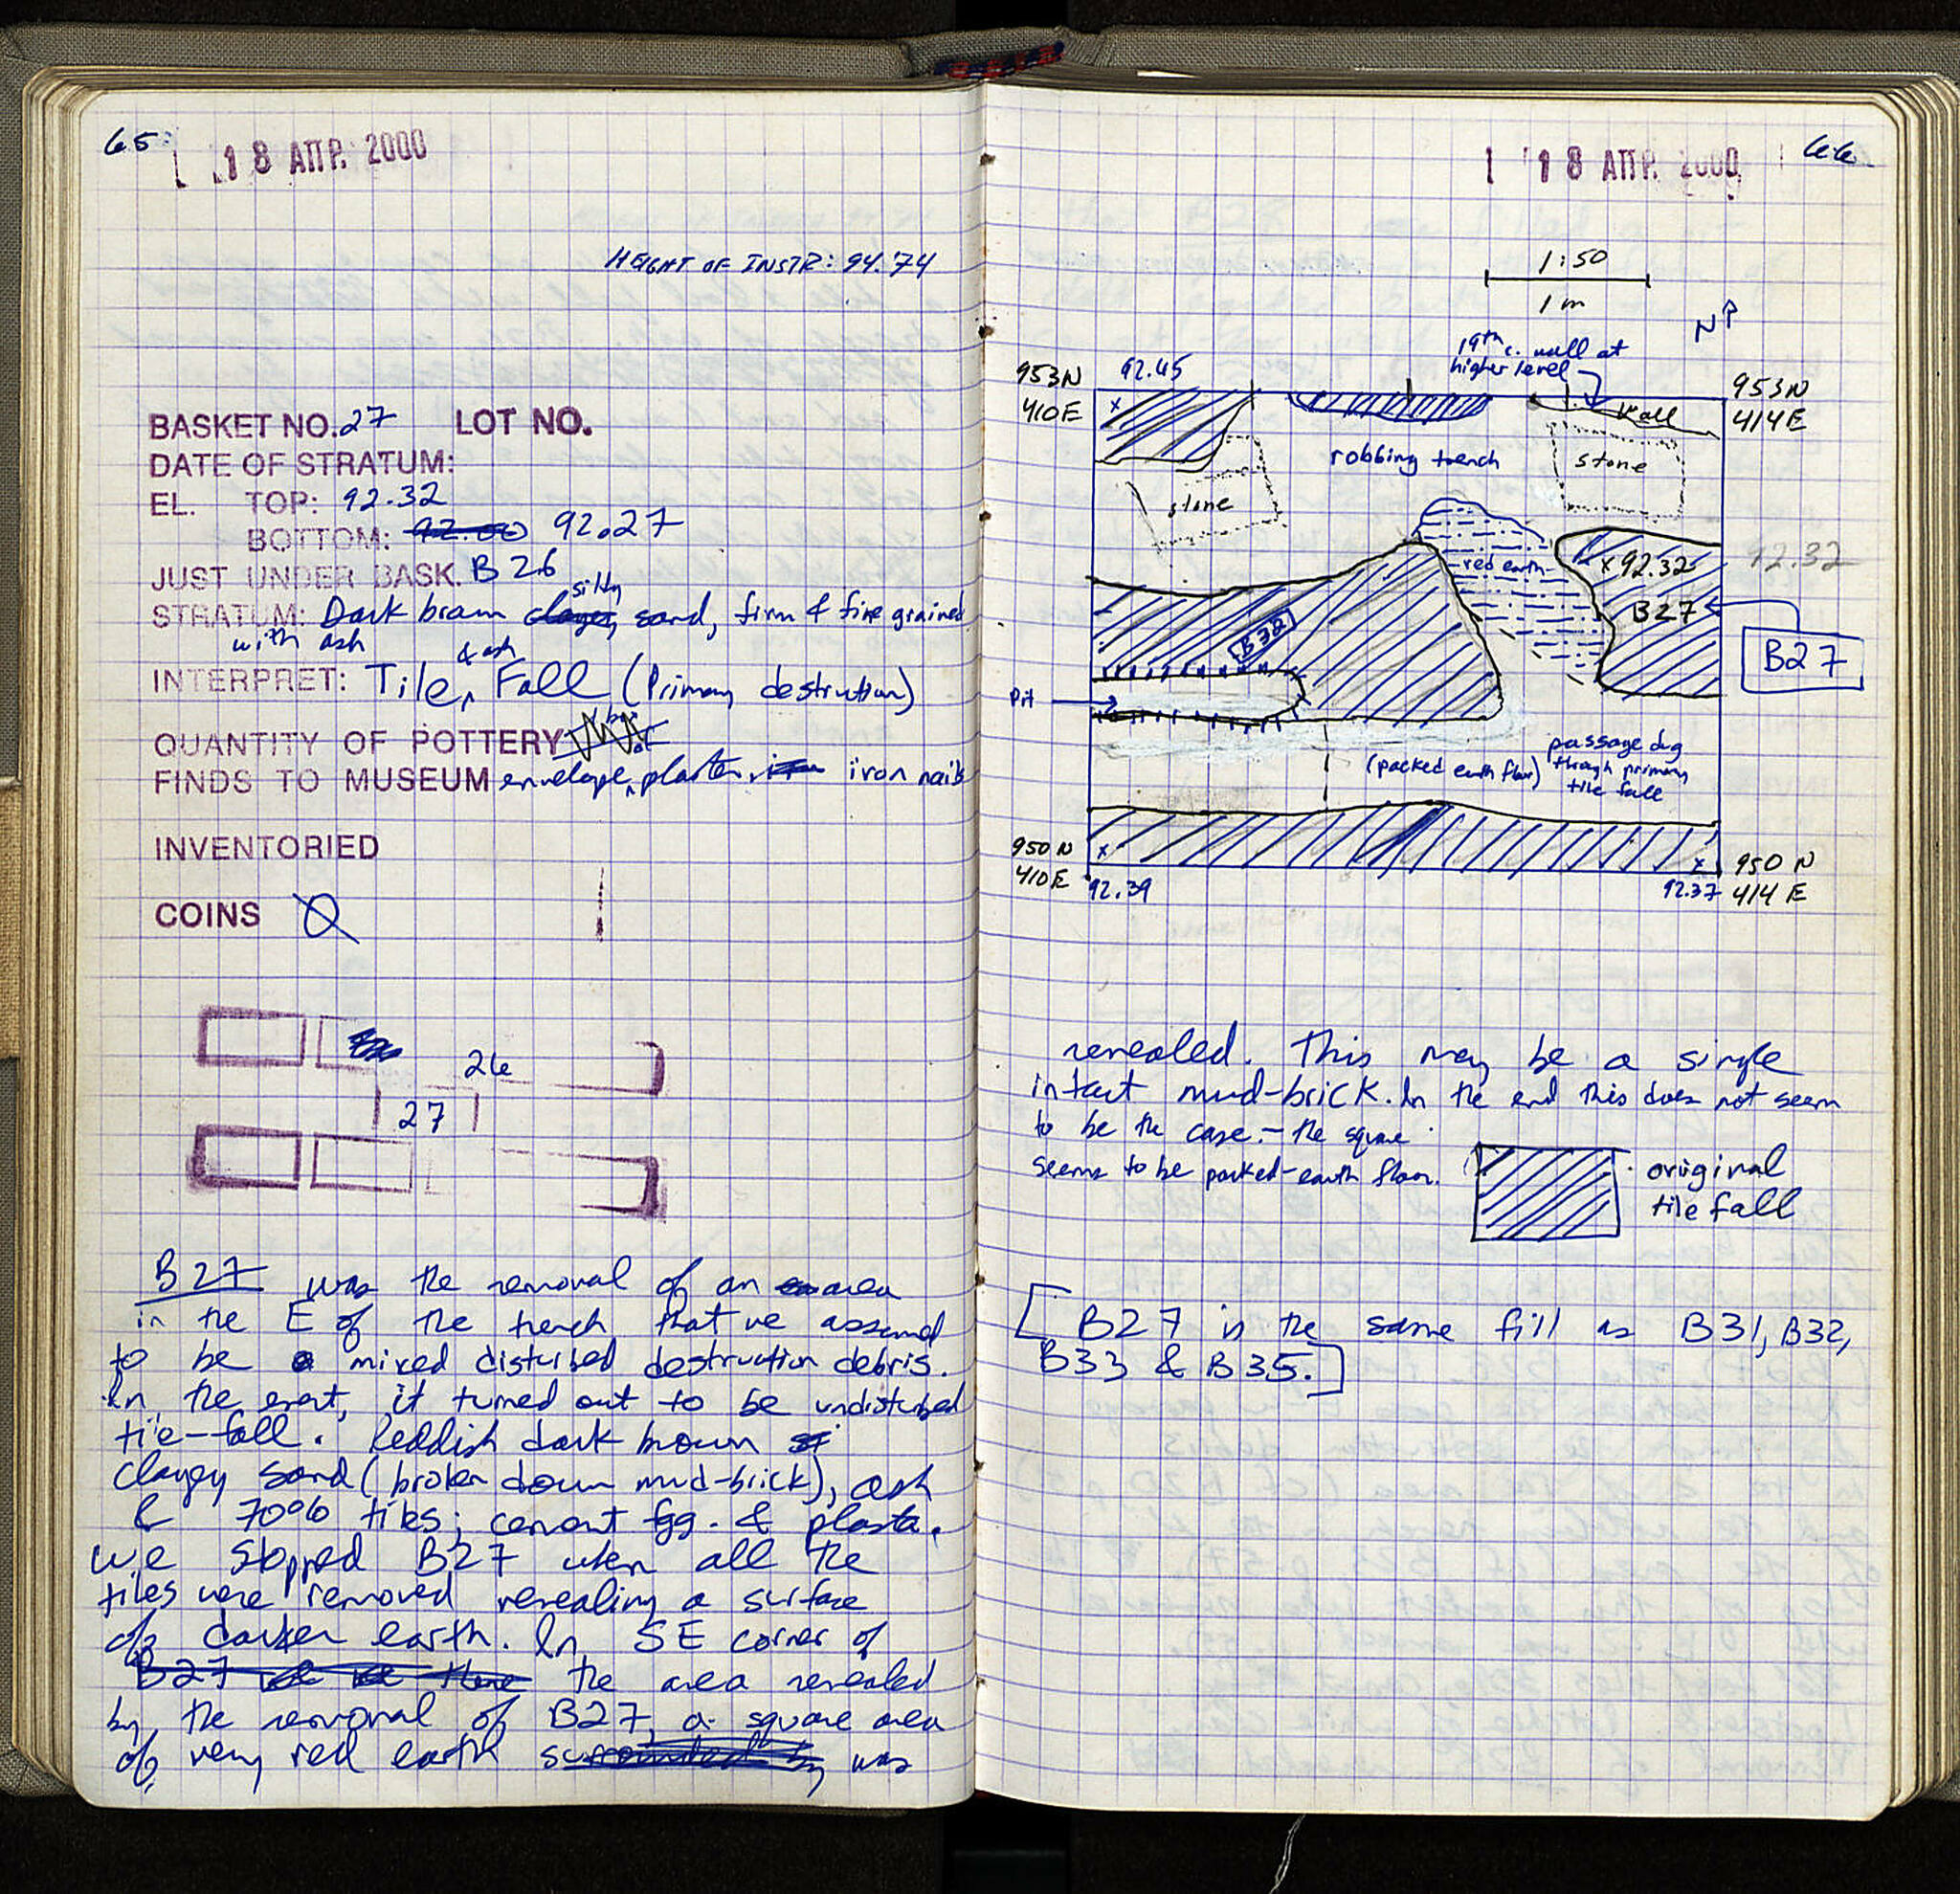 65
18 ΑΠΡ. 2000
HEIGHT OF INSTR: 94.74
BASKET NO. 27 LOT NO.
DATE OF STRATUM:
EL. TOP: 92.32
BOTTOM: 92.00 92.27
JUST UNDER BASK. B26
silty
STRATUM: Dark brown clayey sand, firm & fine grained
with ash
& ash
INTERPRET: Tile Fall (Primary destruction)
QUANTITY OF POTTERY
FINDS TO MUSEUM envelope, plaster, iron nails
INVENTORIED
COINS Ø
26
27
B27 was the removal of an area
in the E of the trench that we assumed
to be a mixed disturbed destruction debris.
In the event, it turned out to be undisturbed
tile-fall. Reddish dark brown
clayey sand (broken down mud-brick), ash
& 70% tiles; cement fgg. & plaster.
We stopped B27 when all the
tiles were removed revealing a surface
of darker earth. In SE corner of
B27 the area revealed
by the removal of B27, a square area
of very red earth surrounded by was
66
18 ΑΠΡ. 2000
1:50
1 m
N
19th c. wall at
higher level
953N
410E
92.45
953N
414E
wall
robbing trench
stone
stone
red earth
x92.32
92.32
B27
B27
B32
Pit
(packed earth floor)
passage dug
through primary
tile fall
950 N
410E
92.39
92.37
950 N
414 E
revealed. This may be a single
intact mud-brick. In the end this does not seem
to be the case – the square
seems to be packed-earth floor.
original
tile fall
[B27 is the same fill as B31, B32,
B33 & B35.]